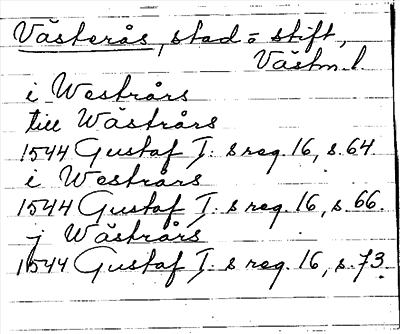 Västerås, stad o stift,
Västm. l
i Westrårs
till Wästrårs
1544 Gustaf I:s reg. 16, s. 64.
i Westrårs
1544 Gustaf I:s reg. 16, s. 66.
j Wästrårs
1544 Gustaf I:s reg. 16, s. 73.